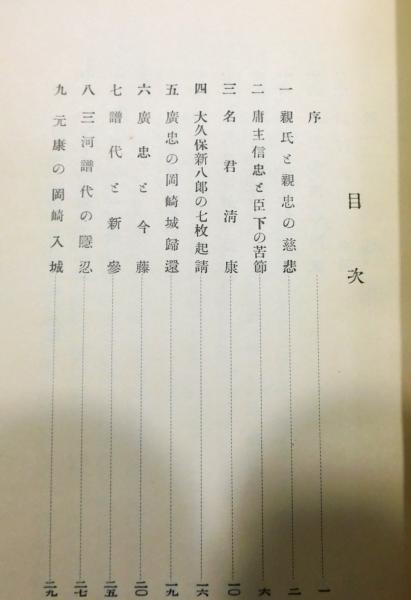 目次
序 一
一 親氏と親忠の慈悲 二
二 庸主信忠と臣下の苦節 六
三 名君淸康 一〇
四 大久保新八郎の七枚起請 一六
五 廣忠の岡崎城歸還 一九
六 廣忠と今藤 二〇
七 譜代と新參 二五
八 三河譜代の隱忍 二七
九 元康の岡崎入城 二九